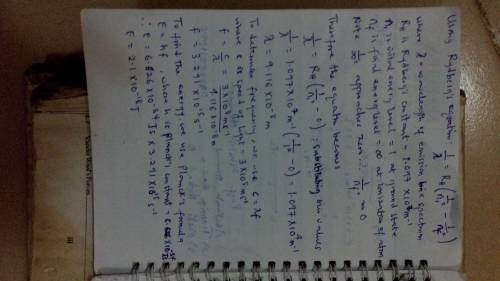 Using Rydberg's equation: 1/λ = R_H (1/n_i² − 1/n_f²)
where λ = wavelength of emission line spectrum
R_H is Rydberg's constant = 1.097 x 10⁷ m⁻¹
n_i is initial energy level = 1 at ground state
n_f is final energy level = ∞ at ionization of atom
Note 1/∞ approaches zero ∴ 1/n_f = 0
Therefore the equation becomes
1/λ = R_H (1/n_i² − 0); substituting our values
1/λ = 1.097 x 10⁷ m⁻¹ (1/1² − 0) = 1.097 x 10⁷ m⁻¹
λ = 9.116 x 10⁻⁸ m
To determine frequency, we use c = λf
where c is speed of light = 3 x 10⁸ ms⁻¹
f = c/λ = 3 x 10⁸ ms⁻¹ / 9.116 x 10⁻⁸ m
f = 3.291 x 10¹⁵ s⁻¹
To find the energy we use Planck's formula
E = hf, where h is planck's constant =
∴ E = 6.626 x 10⁻³⁴ Js x 3.291 x 10¹⁵ s⁻¹
E = 2.1 x 10⁻¹⁸ J